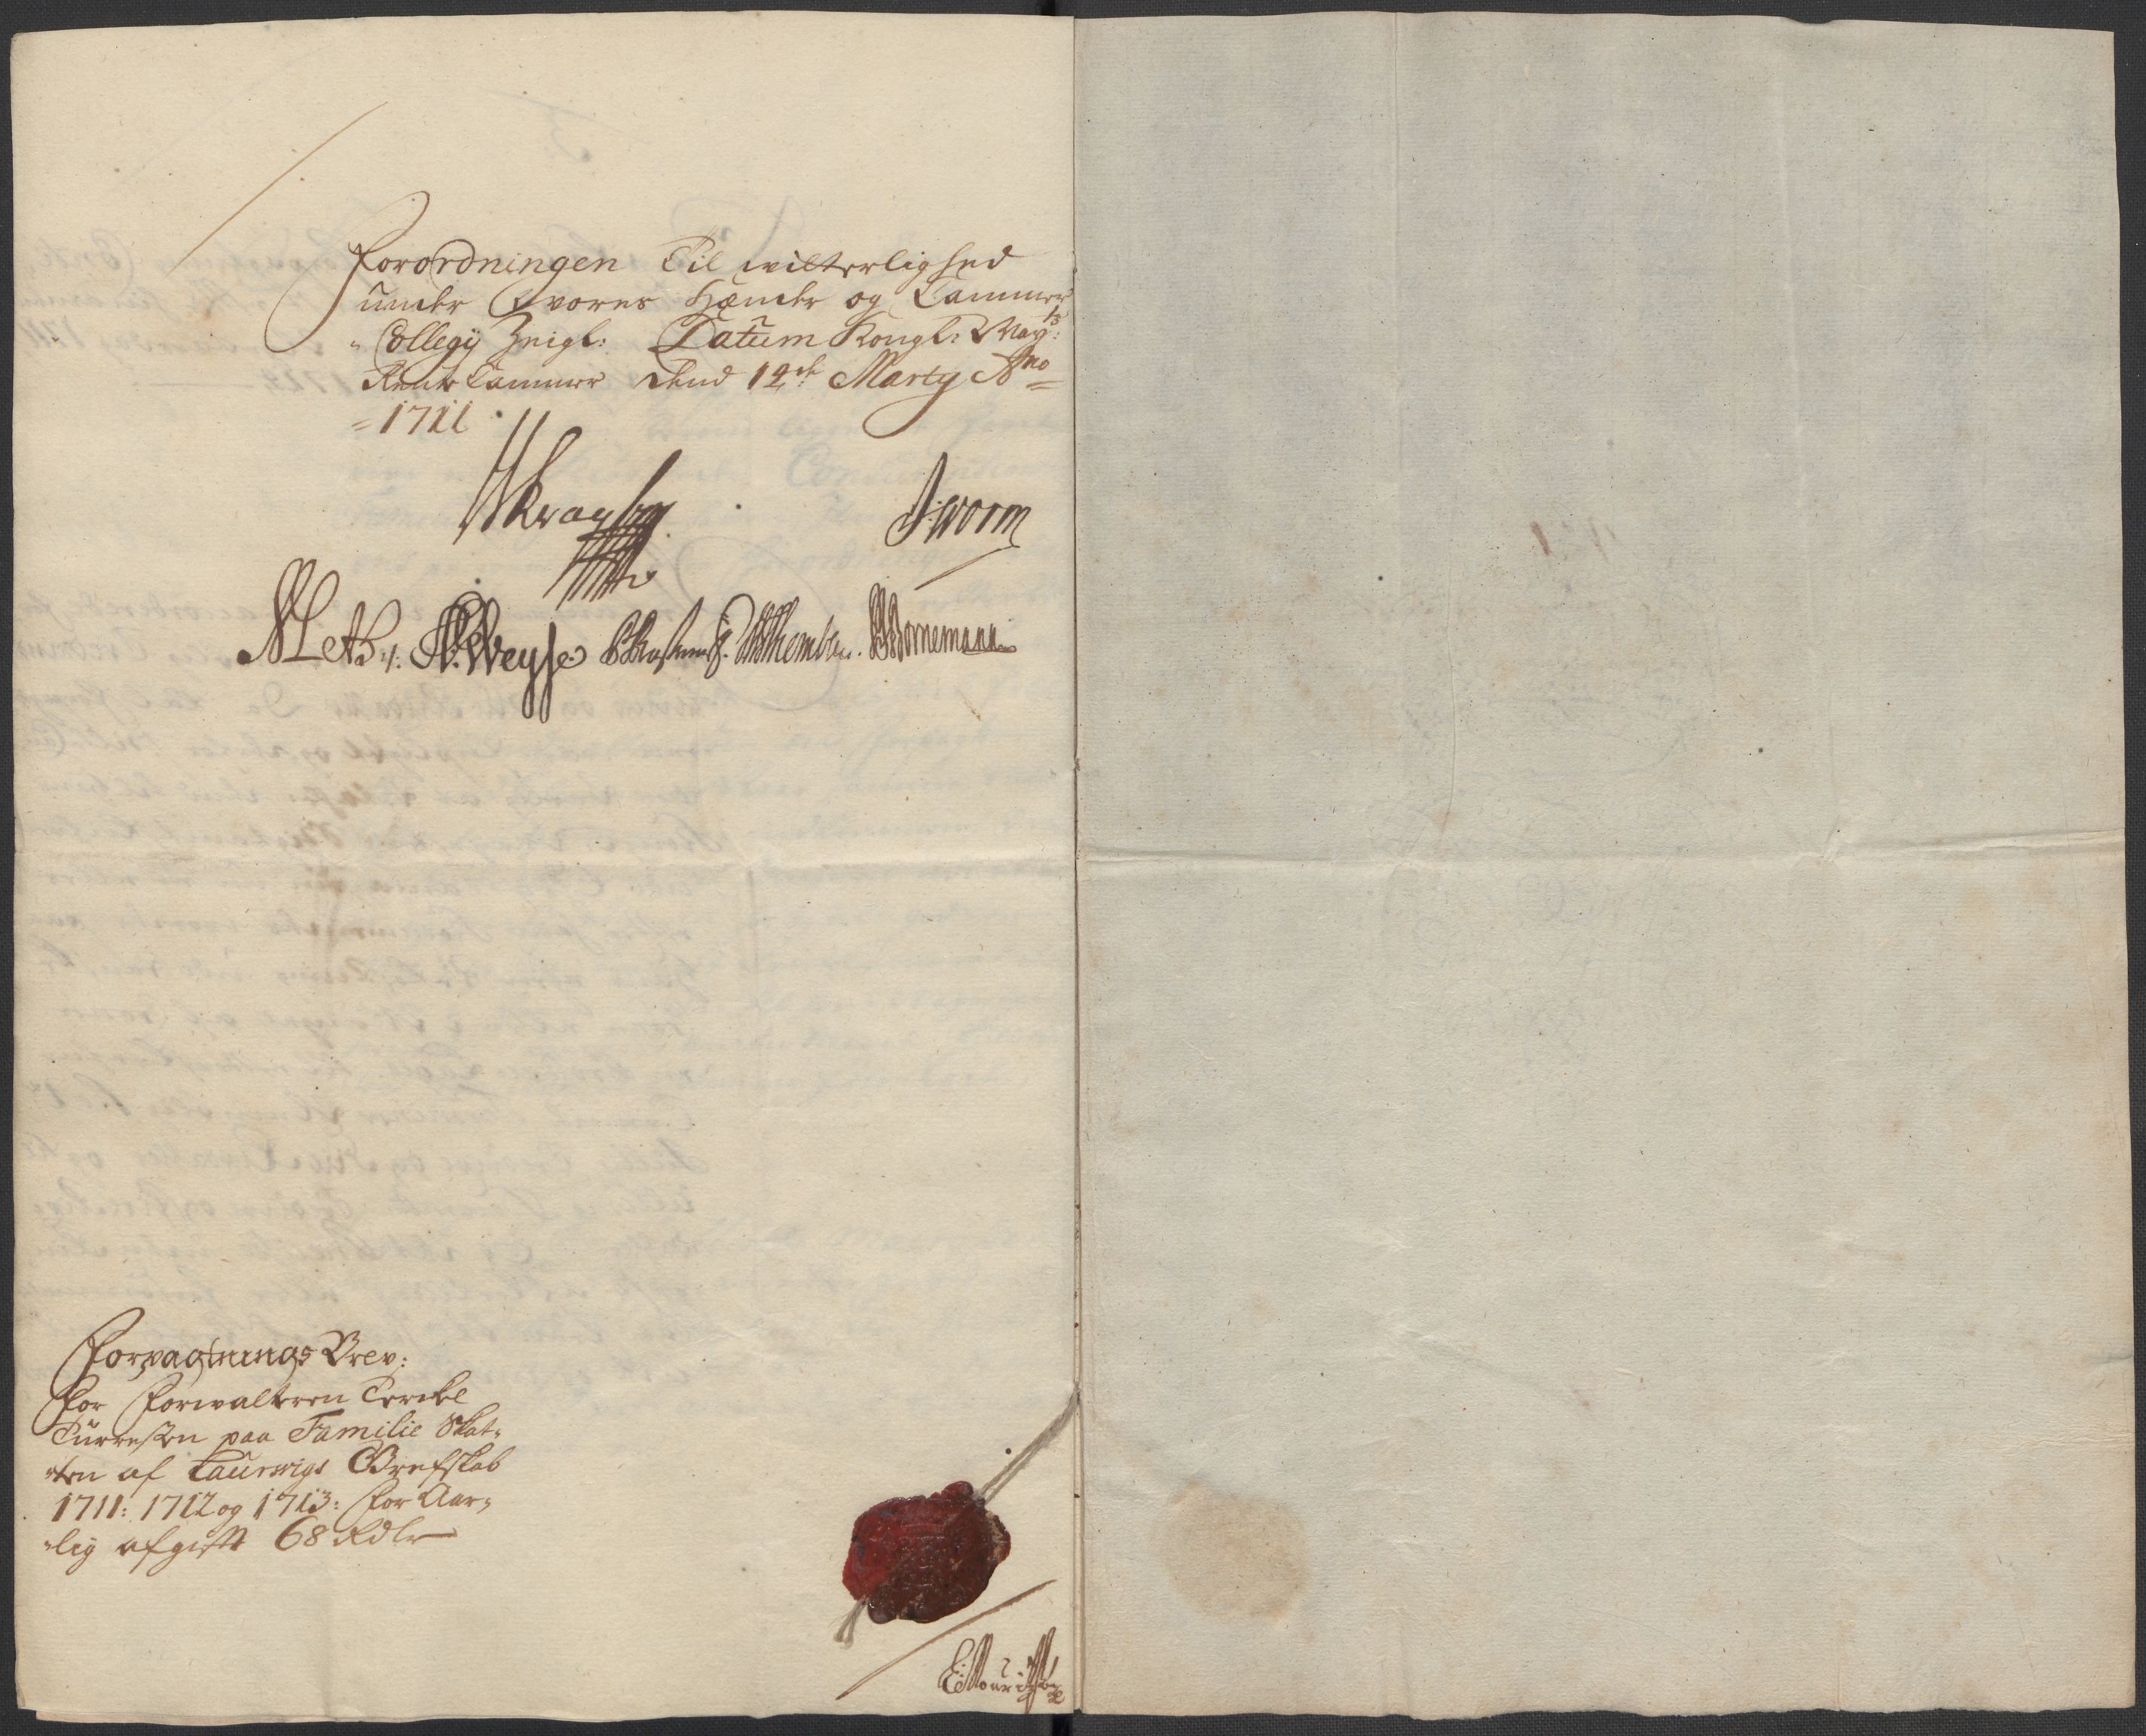 Forordningen Til witterlighed
under vores Hænder og Cammer
Collegij Zeigl: Datum Kongl: May:ts
Rente Cammer dend 14de Marty Ano
1711
J worm
Meth: Weyse Bornemann
Forpagtnings Brev:
For Forwalteren Terckel
Turresen paa Familie Skat-
ten af Laurwigs Grefskab
1711: 1712 og 1713: for Aar-
lig afgift 68 Rdlr